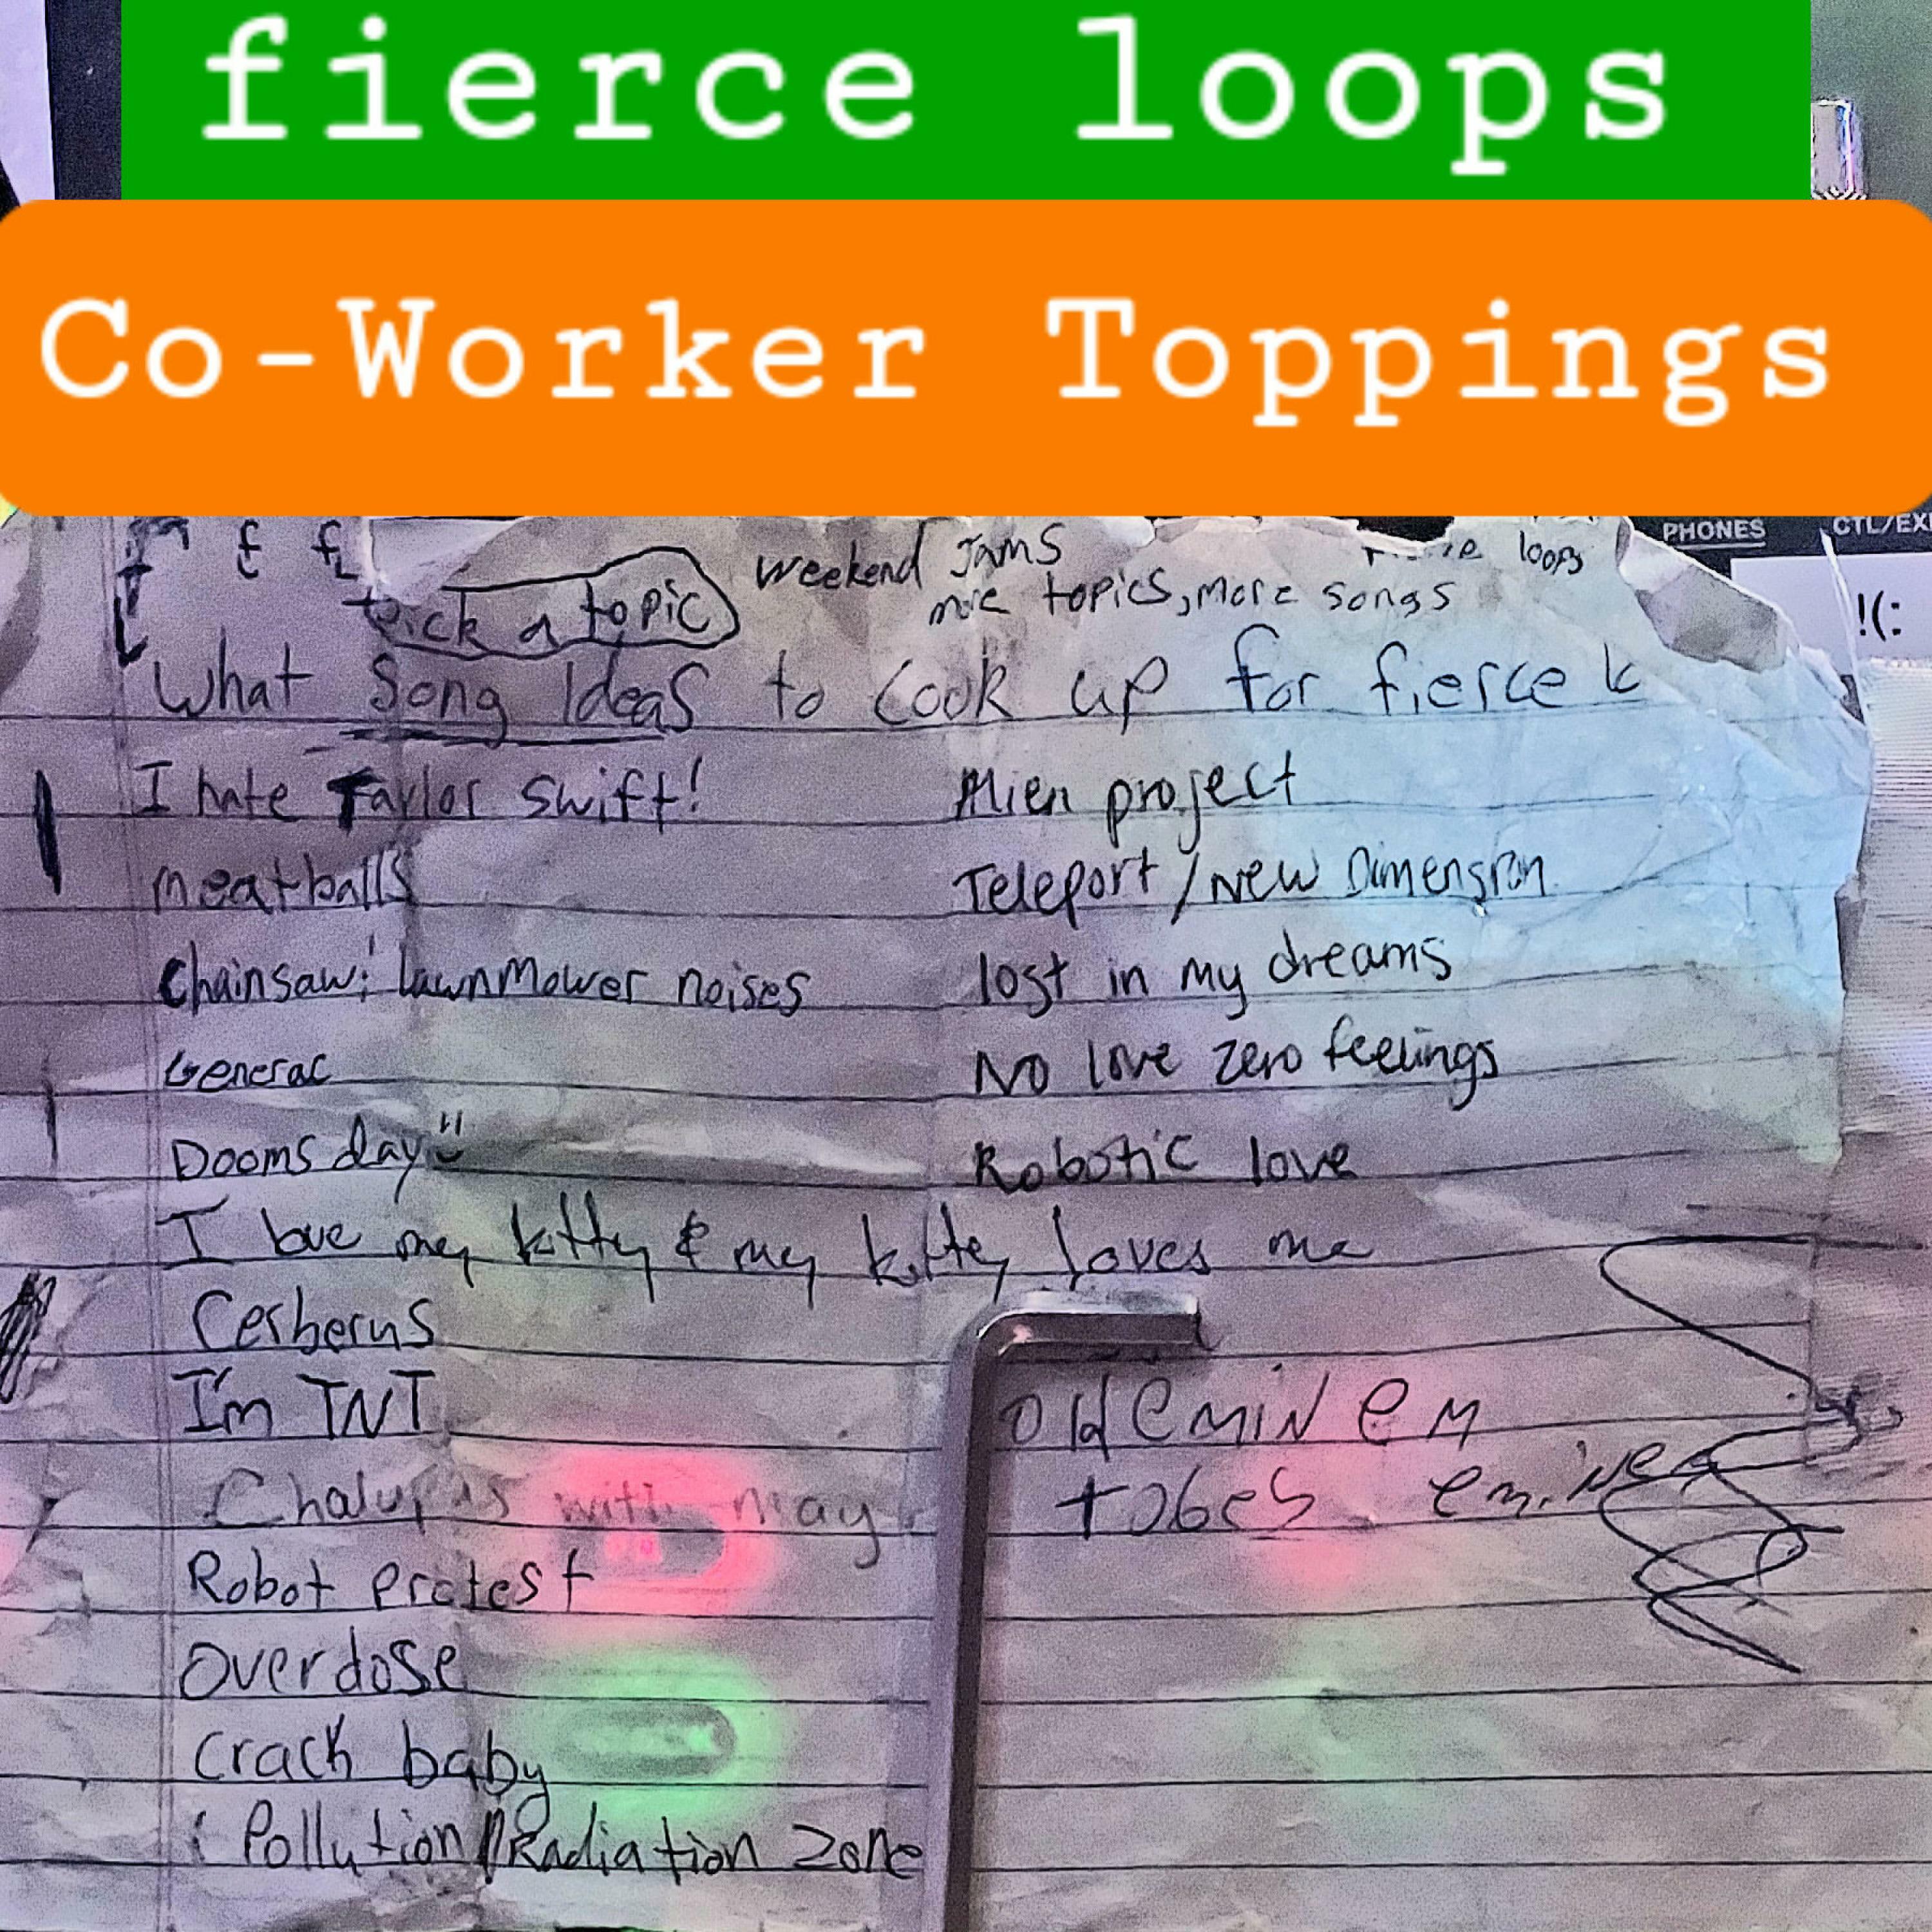 fierce loops
Co-Worker Toppings
PHONES CTL/EX
f f
Pick a topic weekend Jams loops
more topics, more songs
!(:
What Song Ideas to Cook up for fierce
I hate Taylor Swift! Alien project
meatballs Teleport/New Dimension
Chainsaw! lawnmower noises lost in my dreams
Generac No love zero feelings
Dooms day Robotic love
I love my kitty & my kitty loves me
Cerberus
I'm TNT old eminem
Chalupas with may tobes
Robot protest
Overdose
Crack baby
Pollution//Radiation zone